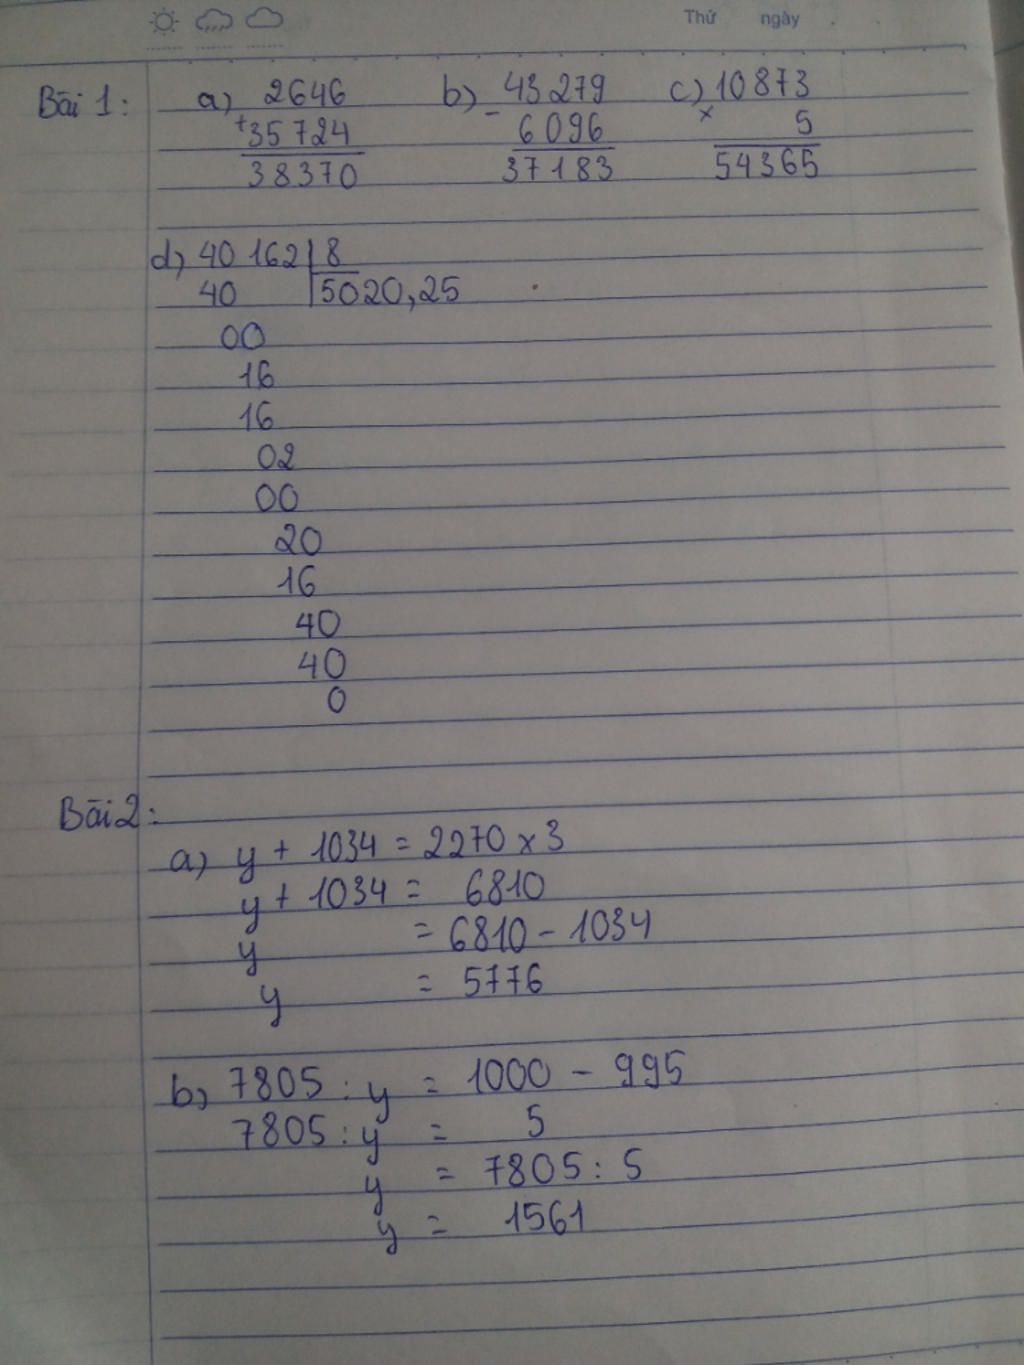 Thứ ngày
Bài 1: a) 2646 b) 43279 c) 10873
+ 35724 - 6096 x 5
38370 37183 54365
d) 40162 8
40 5020,25
00
16
16
02
00
20
16
40
40
0
Bài 2:
a) y + 1034 = 2270 x 3
y + 1034 = 6810
y = 6810 - 1034
y = 5776
b) 7805 : y = 1000 - 995
7805 : y = 5
y = 7805 : 5
y = 1561